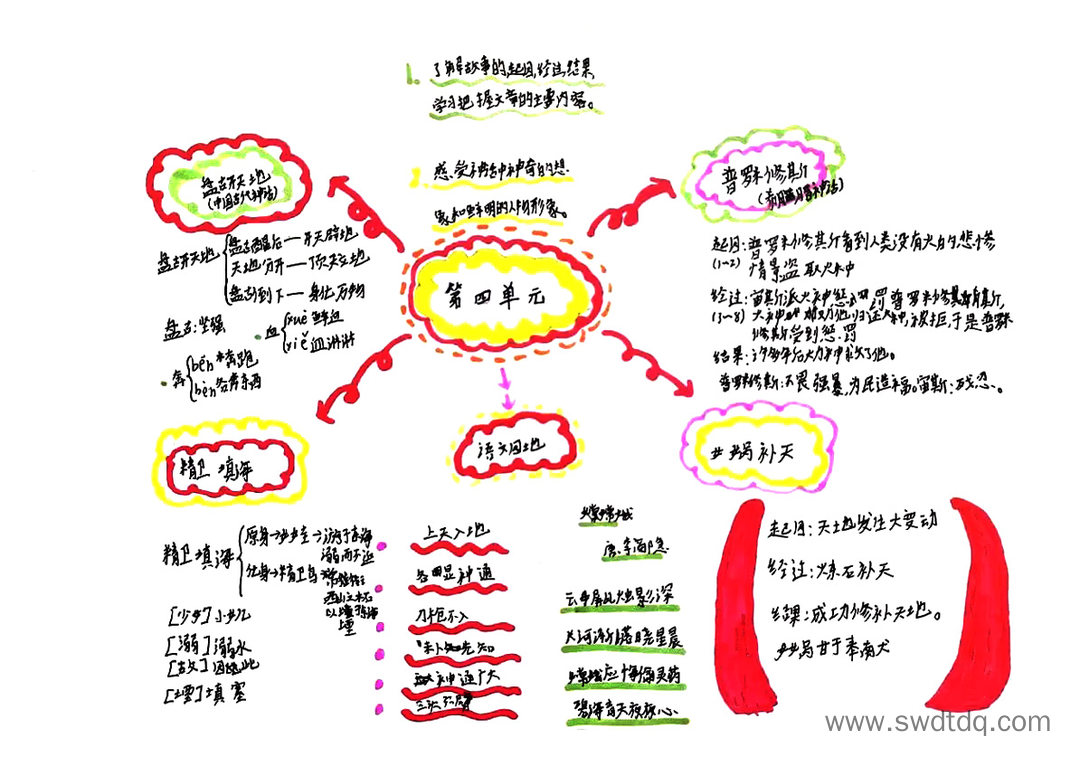 1. 了解故事的起因,经过,结果,
学习把握文章的主要内容。
2. 感受神话中神奇的想
象和鲜明的人物形象。
第四单元
盘古开天地
(中国古代神话)
盘古开天地
盘古醒后——开天辟地
天地分开——顶天立地
盘古倒下——身化万物
盘古:坚强
血
xuè 鲜血
xiě 血淋淋
奔
bēn 奔跑
bèn 各奔东西
普罗米修斯
起因:普罗米修斯看到人类没有火的悲惨
(1~2) 情景盗取火种
经过:宙斯派火神惩罚普罗米修斯,
(3~8) 火神
归还火种,被拒,于是普罗米
修斯受到惩罚
结果:许多年后大力神救了他。
普罗米修斯:不畏强暴,为民造福。宙斯:残忍。
精卫填海
精卫填海
原身→少女
溺而不返
化身→精卫鸟
西山之木石
[少女] 小女儿
[溺] 溺水
[故] 因此
[堙] 填塞
语文园地
上天入地
各显神通
刀枪不入
未卜先知
神通广大
嫦娥
唐 李商隐
云母屏风烛影深
长河渐落晓星晨
嫦娥应悔偷灵药
碧海青天夜夜心
女娲补天
起因:天地发生大变动
经过:炼石补天
结果:成功修补天地。
女娲甘于奉献
www.swdtdq.com